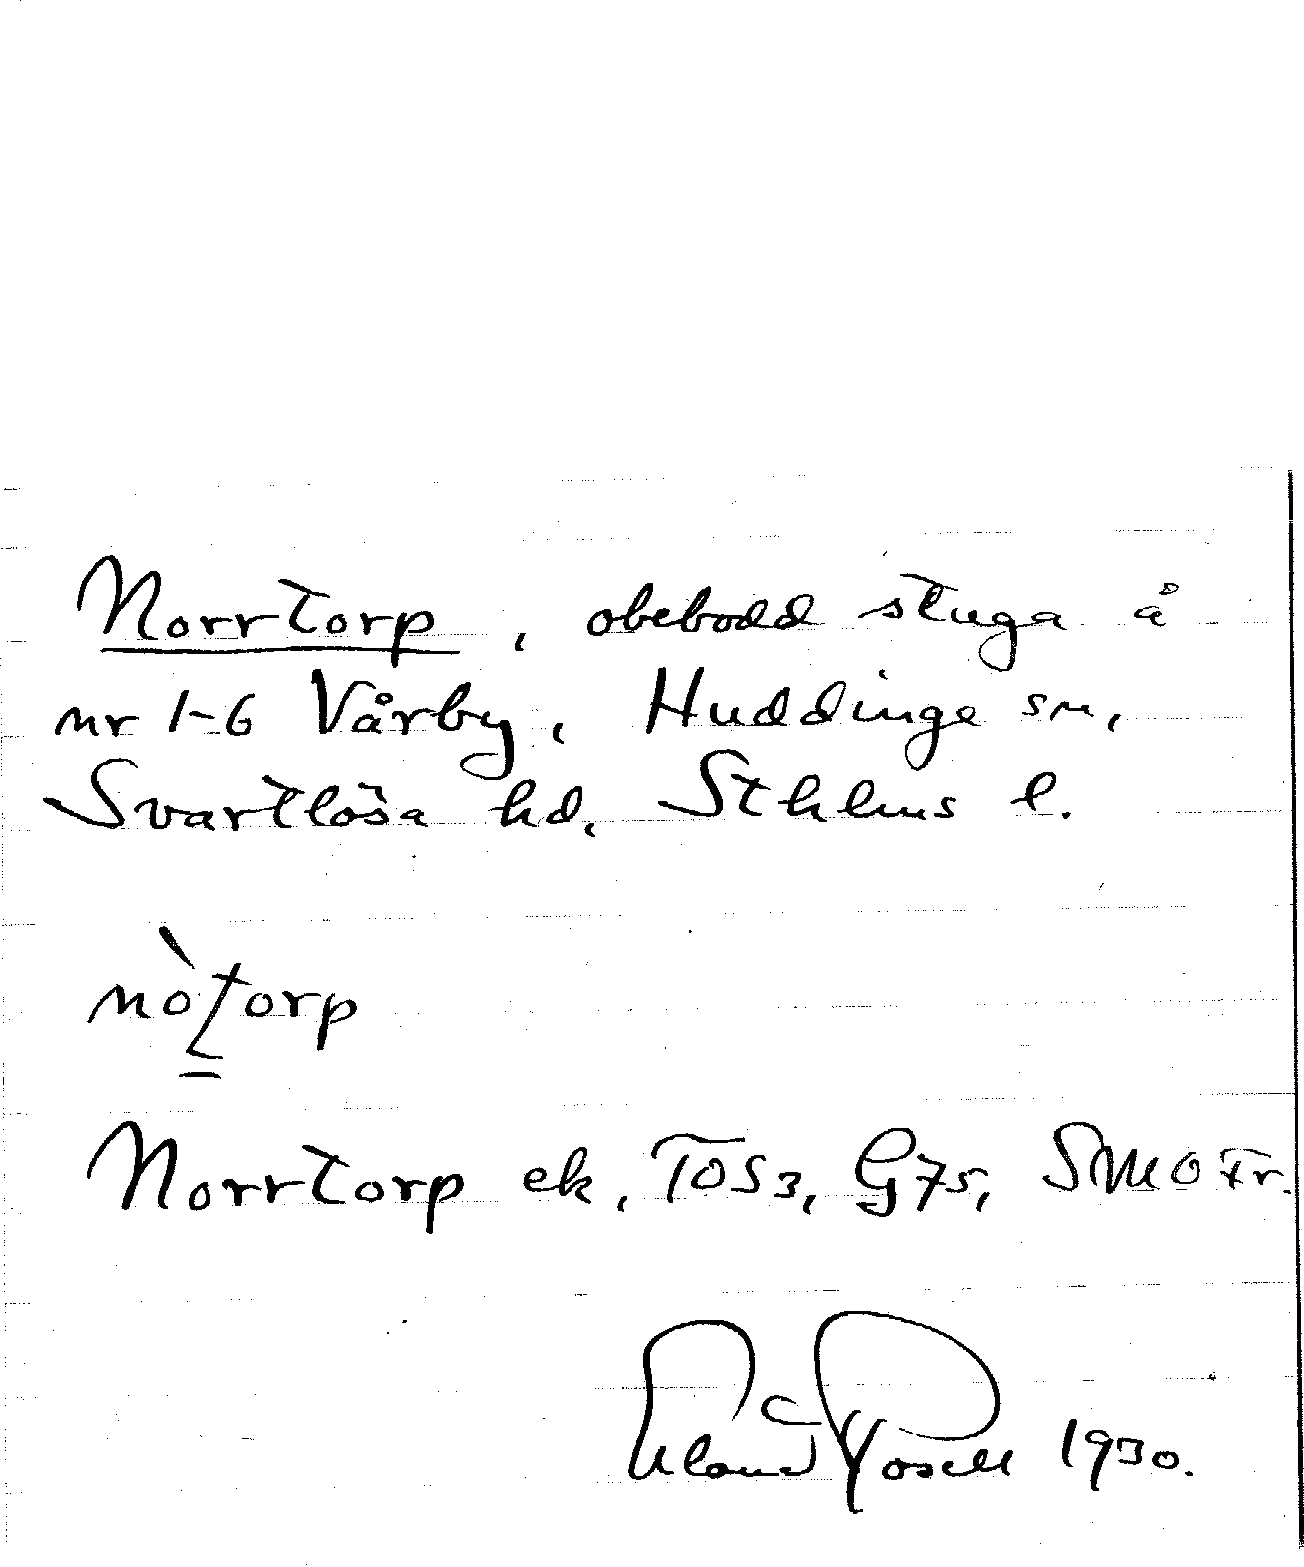 Norrtorp, obebodd stuga å
nr 1-6 Vårby, Huddinge sn,
Svartlösa hd, Sthlms l.
Norrtorp ek, TOS3, G75, SMO Fr.
1930.